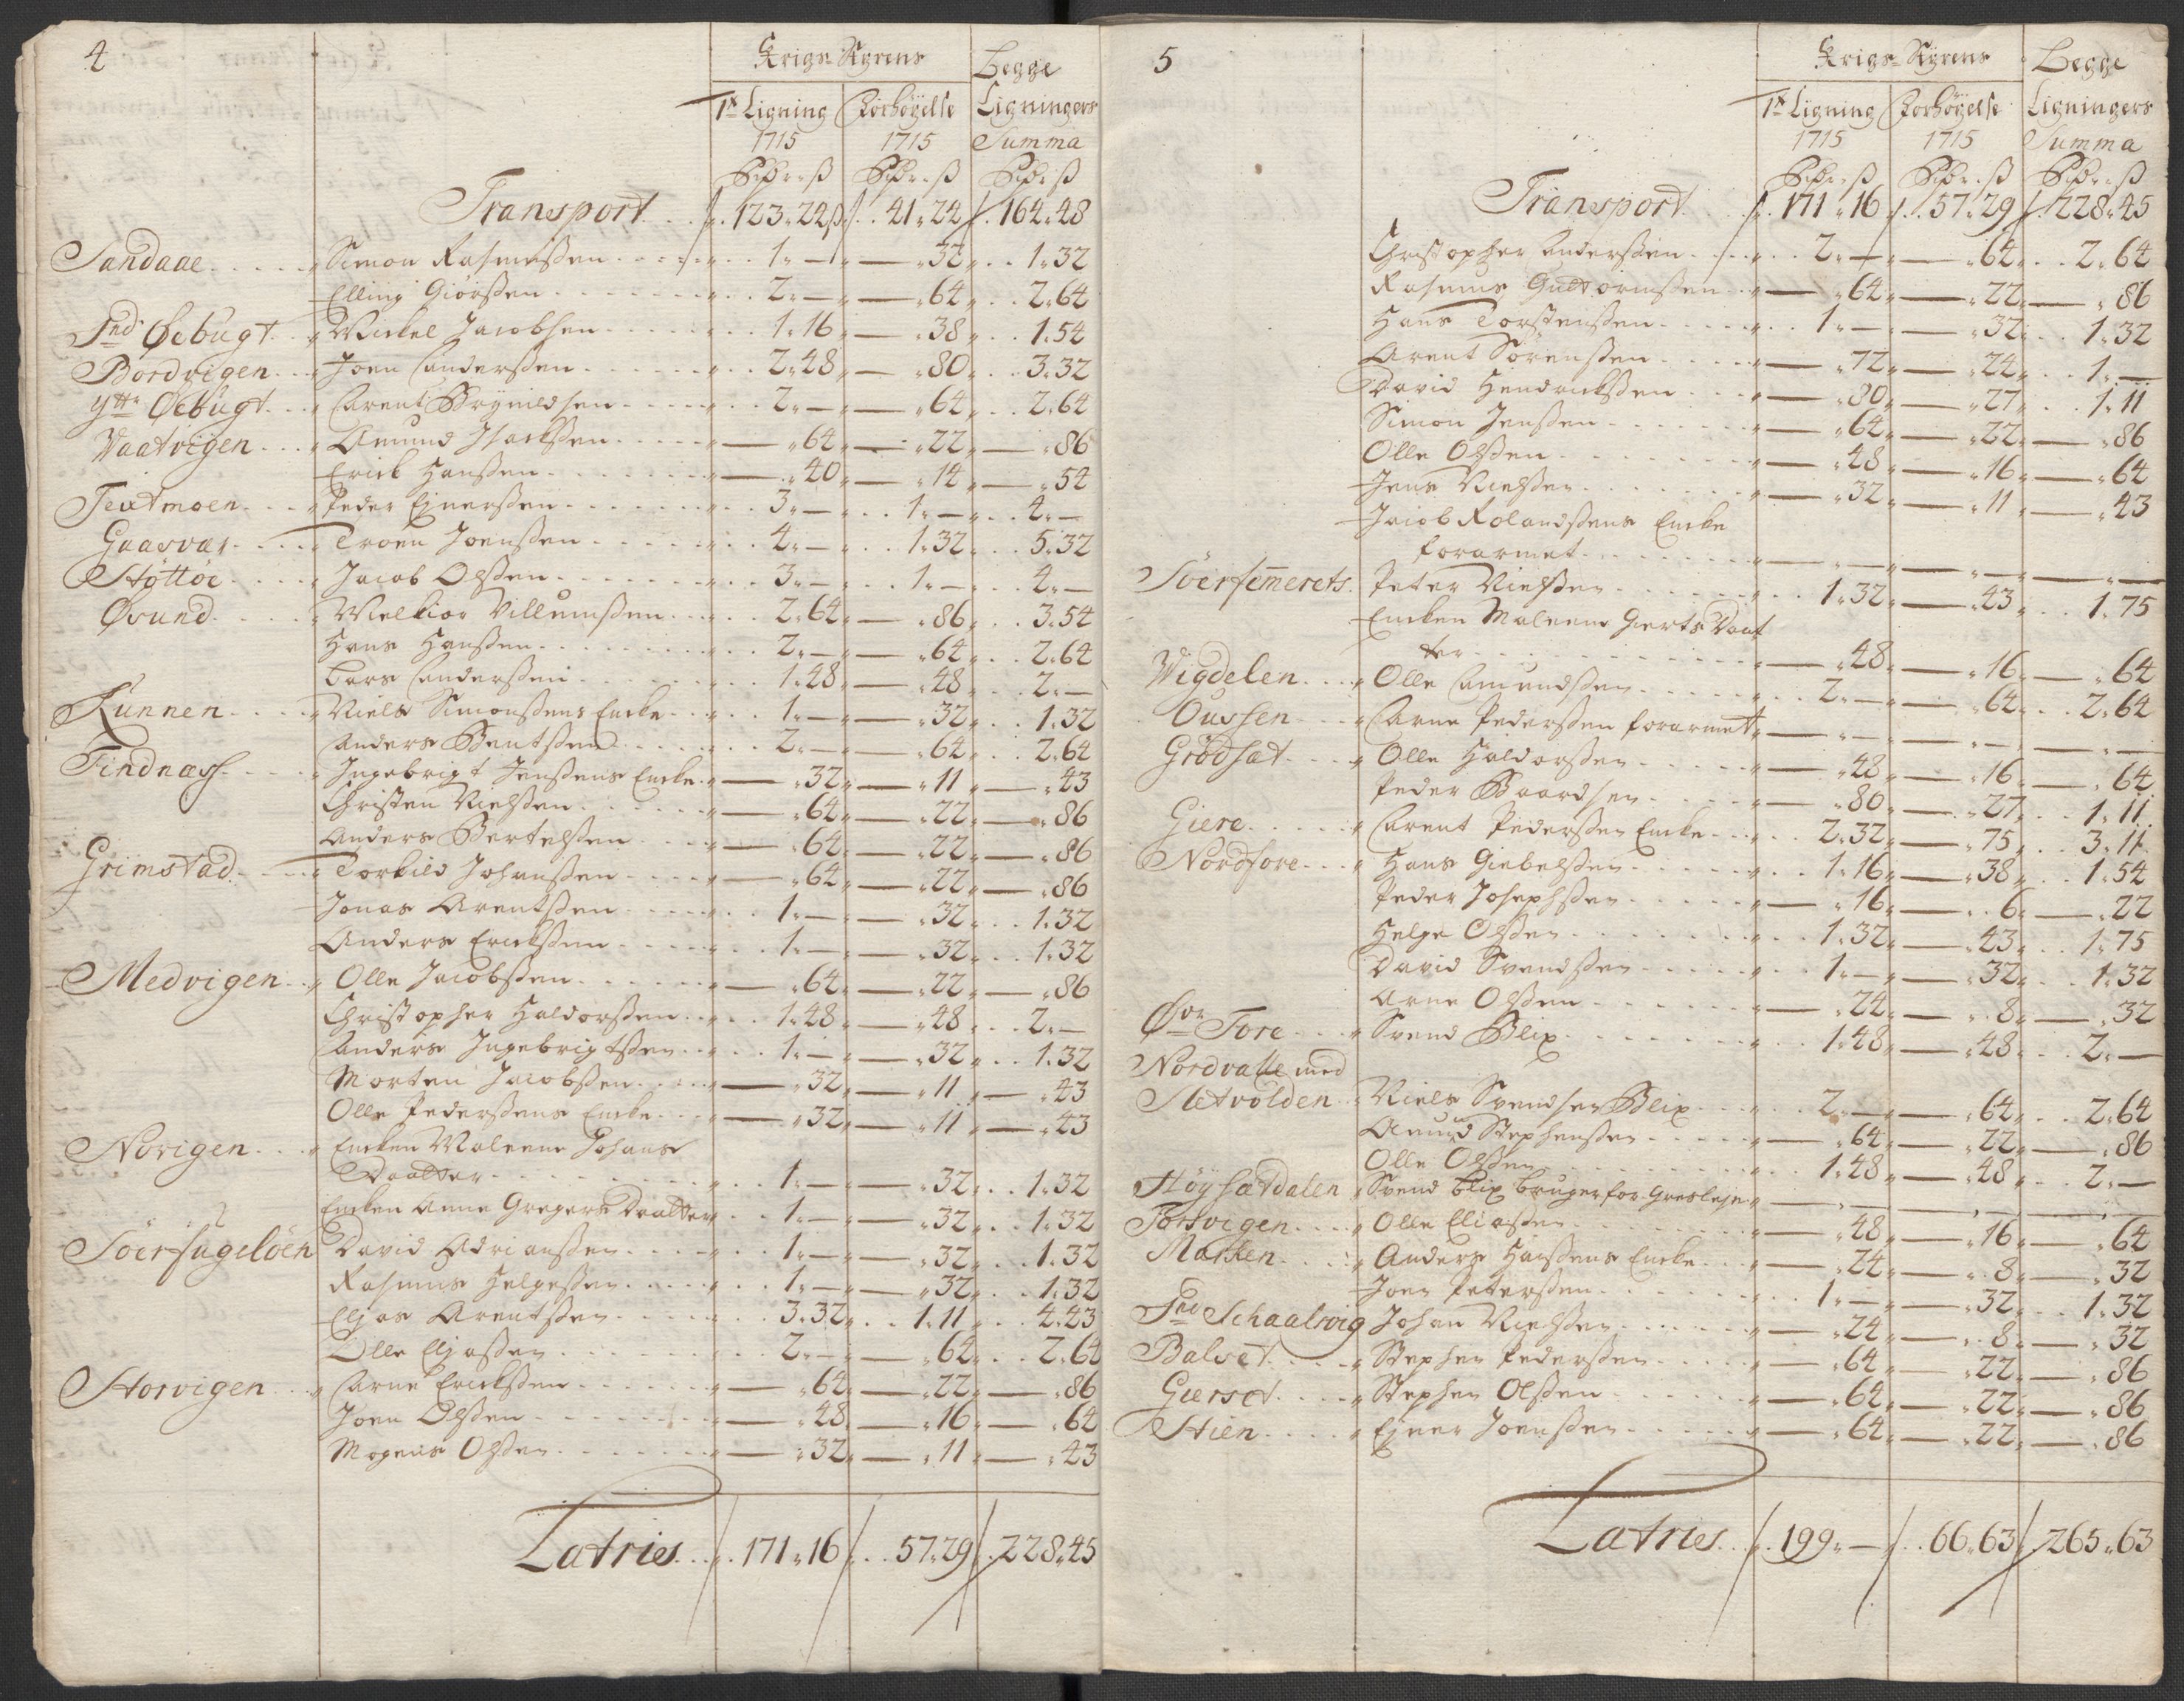 4
Krigs Styrens Begge
1te Ligning Forhöyelse Ligningers
1715 1715 Summa
Rdr ß Rdr ß Rdr ß
Transport 123 . 24 ß 41 . 24 164 . 48
Sandaae Simon Rasmussen 1 . — — . 32 1 . 32
Elling Giörssen 2 . — — . 64 2 . 64
Ind Öebugt Mickel Jacobsen 1 . 16 — . 38 1 . 54
Bordvigen Joen Anderssen 2 . 48 — . 80 3 . 32
Ytte Öebugt Arent Brynildsen 2 . — — . 64 2 . 64
Vaatvigen Amund Isackssen — . 64 — . 22 — . 86
Erick Hanssen — . 40 — . 14 — . 54
Textmoen Peder Ejnerssen 3 . — 1 . — 4 . —
Gaasvær Troen Joenssen 4 . — 1 . 32 5 . 32
Støttöe Jacob Olssen 3 . — 1 . — 4 . —
Øsund Melkior Villumssen 2 . 64 — . 86 3 . 54
Hans Hanssen 2 . — — . 64 2 . 64
Lars Anderssen 1 . 48 — . 48 2 . —
Kunnen Niels Simonssens Encke 1 . — — . 32 1 . 32
Anders Bentssen 2 . — — . 64 2 . 64
Tindnæss Ingebrigt Jenssens Encke — . 32 — . 11 — . 43
Christen Nielssen — . 64 — . 22 — . 86
Anders Bertelssen — . 64 — . 22 — . 86
Grimstad Torkild Johanssen — . 64 — . 22 — . 86
Jonas Arentssen 1 . — — . 32 1 . 32
Anders Erickssen 1 . — — . 32 1 . 32
Medvigen Olle Jacobssen — . 64 — . 22 — . 86
Christopher Haldorssen 1 . 48 — . 48 2 . —
Anders Ingebrigtssen 1 . — — . 32 1 . 32
Morten Jacobssen — . 32 — . 11 — . 43
Olle Pederssens Encke — . 32 — . 11 — . 43
Norvigen Encken Maleene Johans
Daatter 1 . — — . 32 1 . 32
Encken Anne Gregers Daatter 1 . — — . 32 1 . 32
Söerfugelöen David Adrianssen 1 . — — . 32 1 . 32
Rasmus Helgessen 1 . — — . 32 1 . 32
Elias Arentssen 3 . 32 1 . 11 4 . 43
Olle Eliassen 2 . — — . 64 2 . 64
Storvigen Arne Erickssen — . 64 — . 22 — . 86
Joen Olssen — . 48 — . 16 — . 64
Mogens Olssen — . 32 — . 11 — . 43
Latries 171 . 16 57 . 29 228 . 45
5
Krigs Styrens Begge
1te Ligning Forhöyelse Ligningers
1715 1715 Summa
Rdr ß Rdr ß Rdr ß
Transport 171 . 16 57 . 29 228 . 45
Christopher Anderssen 2 . — — . 64 2 . 64
Rasmus Gudtormssen — . 64 — . 22 — . 86
Hans Torstenssen 1 . — — . 32 1 . 32
Arent Sörenssen — . 72 — . 24 1 . —
David Hendrickssen — . 80 — . 27 1 . 11
Simon Jenssen — . 64 — . 22 — . 86
Olle Olssen — . 48 — . 16 — . 64
Jens Nielssen — . 32 — . 11 — . 43
Jacob Rolandssens Encke
forarmet — . — — . — — . —
Söerfemerets Peter Nielssen 1 . 32 — . 43 1 . 75
Encken Maleene Gierts Daat
ter — . 48 — . 16 — . 64
Wigdelen Olle Amundssen 2 . — — . 64 2 . 64
Oussen Arne Pederssen forarmet — . — — . — — . —
Grödsæt Olle Haldorssen — . 48 — . 16 — . 64
Peder Baardsen — . 80 — . 27 1 . 11
Giere Arent Pederssen Encke 2 . 32 — . 75 3 . 11
Nordfore Hans Giebelssen 1 . 16 — . 38 1 . 54
Peder Josephssen — . 16 — . 6 — . 22
Helge Olssen 1 . 32 — . 43 1 . 75
David Svendssen 1 . — — . 32 1 . 32
Arne Olssen — . 24 — . 8 — . 32
Övr Fore Svend Blix 1 . 48 — . 48 2 . —
Nordvalle med
Sletvolden Niels Svendsen Blix 2 . — — . 64 2 . 64
Amund Stephenssen — . 64 — . 22 — . 86
Olle Olssen 1 . 48 — . 48 2 . —
Höysætdalen Svend Blix bruger for Gresleje — . — — . — — . —
Torsvigen Olle Eliassen — . 48 — . 16 — . 64
Marken Anders Hanssens Encke — . 24 — . 8 — . 32
Joen Peterssen 1 . — — . 32 1 . 32
Ind Schaalsvig Johan Nielssen — . 24 — . 8 — . 32
Balset Stephen Pederssen — . 64 — . 22 — . 86
Gierset Stephen Olssen — . 64 — . 22 — . 86
Stien Ejner Joenssen — . 64 — . 22 — . 86
Latries 199 . — 66 . 63 265 . 63